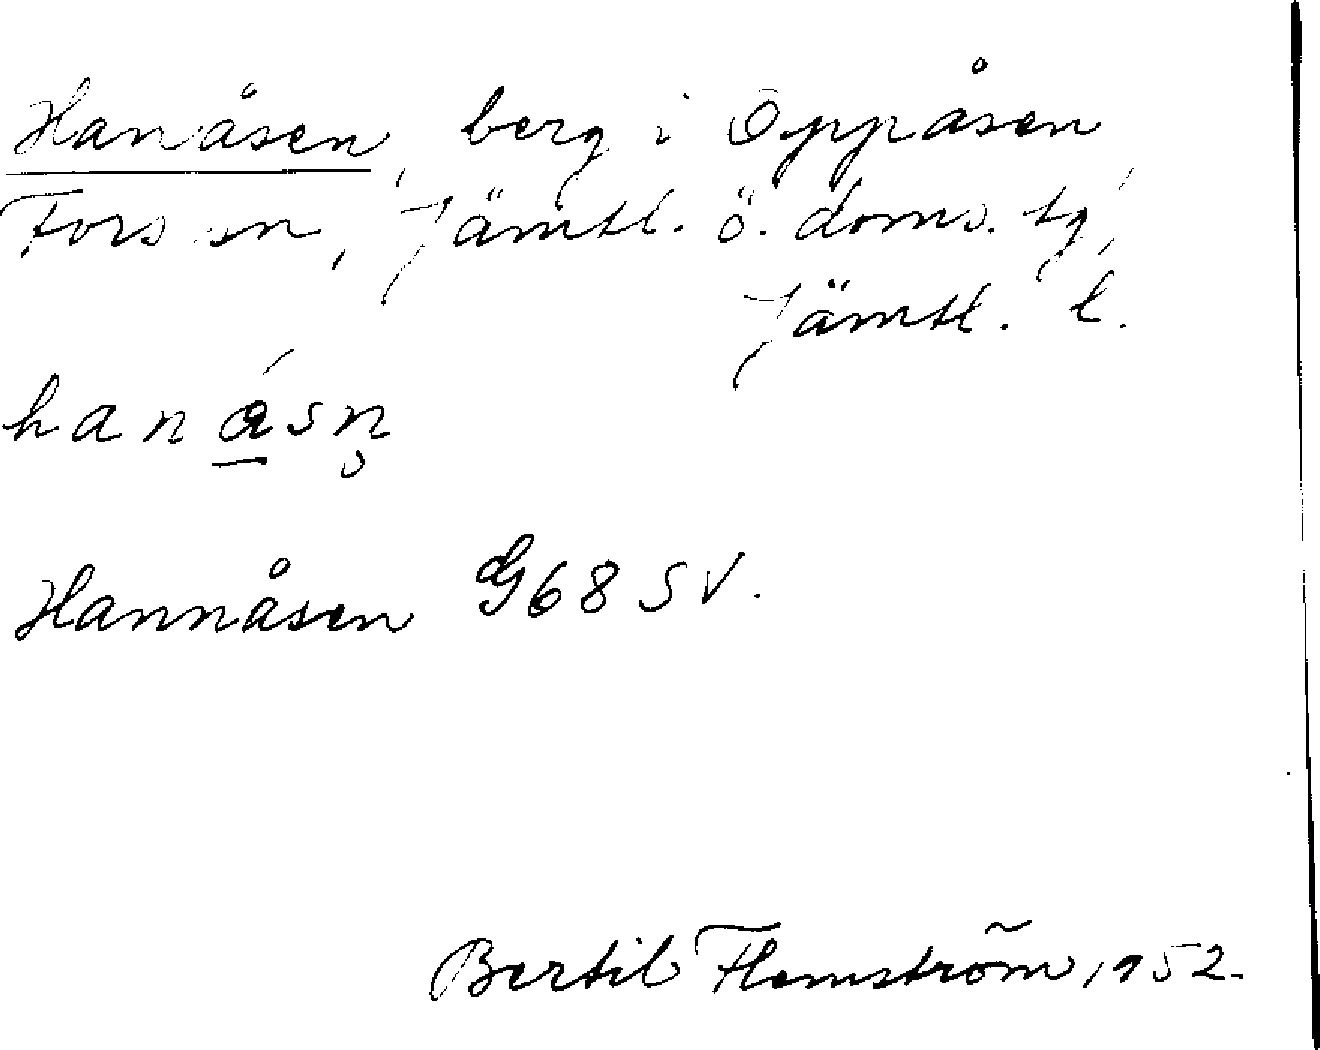 Hanåsen, berg i Oppåsen,
Fors sn, Jämtl. ö. doms. tg,
Jämtl. l.
hanåsn̥
Hannåsen G68 SV.
Bertil Flemström, 1952.